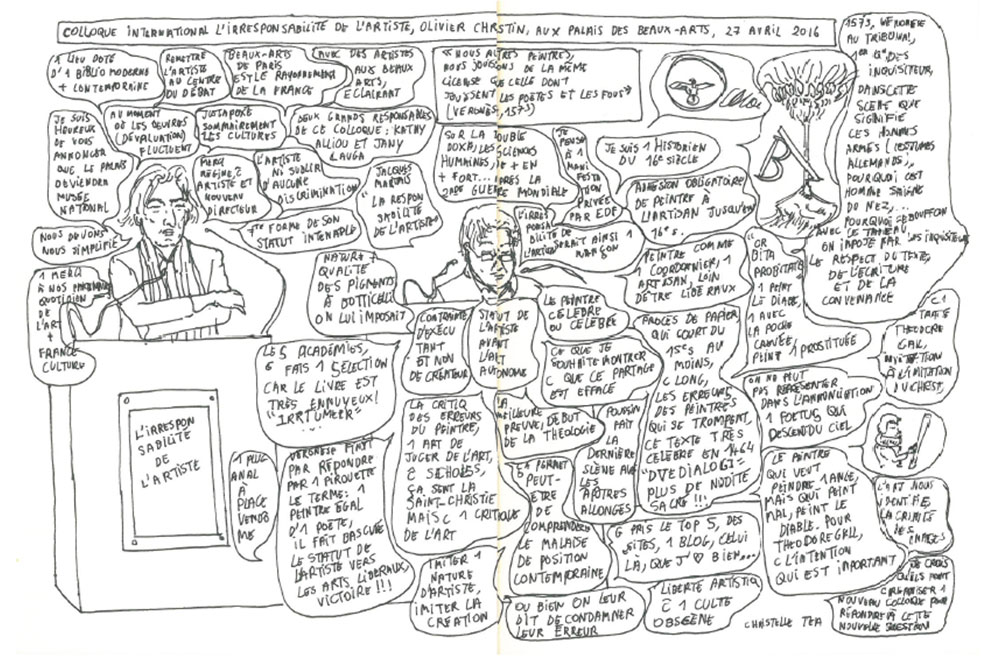 COLLOQUE INTERNATIONAL L'IRRESPONSABILITÉ DE L'ARTISTE, OLIVIER CHRSTIN, AUX PALAIS DES BEAUX-ARTS, 27 AVRIL 2016
1 LIEU DOTÉ
D'1 BIBLIO MODERNE
+ CONTEMPORAINE
REMETTRE
L'ARTISTE
AU CENTRE
DU DÉBAT
BEAUX-ARTS
DE PARIS
EST LE RAYONNEMENT
DE LA FRANCE
AVEC DES ARTISTES
AUX BEAUX
ARTS,
ECLAIRANT
JE SUIS
HEUREUX
DE VOUS
ANNONCER
QUE LE PALAIS
DEVIENDRA
MUSÉE
NATIONAL
AU MOMENT
OÙ LES ŒUVRES
(DÉVALUATION)
FLUCTUENT
JUXTAPOSÉ
SOMMAIREMENT
LES CULTURES
DEUX GRANDS RESPONSABLES
DE CE COLLOQUE : KATHY
ALLIOU ET JANY
LAUGA
MERCI
RÉGINE, 2
ARTISTE ET
NOUVEAU
DIRECTEUR
L'ARTISTE
NI SUBLIR
D'AUCUNE
DISCRIMINATION
JACQUES
MARTAIS
"LA RESPON
SABILITÉ
DE L'ARTISTE"
1ère FORME DE SON
STATUT INTENABLE
NOUS DEVONS
NOUS SIMPLIFIÉ
1 MERCI
À NOS PARTENAIRES
QUOTIDIEN
DE
L'ART
+
FRANCE
CULTURE
« NOUS AUTRES PEINTRES,
NOUS JOUISSONS DE LA MÊME
LICENSE QUE CELLE DONT
JOUISSENT LES POÈTES ET LES FOUS»
(VERONESE, 1573)
SUR LA DOUBLE
DOXA, LES SCIENCES
HUMAINES, DE + EN
+ FORT... APRÈS LA
2nde GUERRE MONDIALE
JE
PENSE
À 1
MANI
FESTA
TION
PRIVÉE
PAR EDF
JE SUIS 1 HISTORIEN
DU 16e SIÈCLE
ADHESION OBLIGATOIRE
DE PEINTRE À
L'ARTISAN JUSQU'EN
16e S.
L'IRRES
PONSA
BILITÉ DE
L'ARTISTE
SERAIT AINSI 1
MAÇON
NATURE +
QUALITÉ
DES PIGMENTS
À BOTTICELLI
ON LUI IMPOSAIT
CONTRAINTE
D'EXÉCU
TANT
ET NON
DE CRÉATEUR
STATUT DE
L'ARTISTE
AVANT
L'ART
AUTONOME
LE PEINTRE
CÉLÈBRE
OU CELEBRÉ
PEINTRE COMME
1 CORDONNIER, 1
ARTISAN, LOIN
D'ÊTRE LIBÉRAUX
CE QUE JE
SOUHAITE MONTRER
C QUE CE PARTAGE
EST EFFACÉ
PROCÈS DE PAPIER
QUI COURT DU
15e S AU
MOINS,
C LONG,
LES ERREURS
DES PEINTRES
QUI SE TROMPENT,
CE TEXTE TRÈS
CÉLÈBRE EN 1464
"DUE DIALOGI"
PLUS DE NUDITÉ
SACRÉ !!!
1573, VERONESE
AU TRIBUNAL,
1ère Q° DES
INQUISITEUR,
DANS CETTE
SCÈNE QUE
SIGNIFIE
CES HOMMES
ARMÉS (COSTUMES
ALLEMANDS),
POURQUOI CET
HOMME SAIGNE
DU NEZ,...
POURQUOI CE BOUFFON
AVEC CE TABLEAU
ON IMPOSE PAR LES INQUISITEURS
LE RESPECT DU TEXTE,
DE L'ÉCRITURE
ET DE LA
CONVENANCE
B
1 PEINT
LE DIABLE,
1 AVEC
LA POCHE
CARRÉE,
PEINT 1 PROSTITUÉE
C 1
TRAITÉ
THEODORE
GAL,
À L'IMITATION
DU CHRIST,
ON NE PEUT
PAS REPRÉSENTER
DANS L'ANNONCIATION
1 FOETUS QUI
DESCEND DU CIEL
LE PEINTRE
QUI VEUT
PEINDRE 1 ANGE,
MAIS QUI PEINT
MAL, PEINT LE
DIABLE. POUR
THEODORE GALL,
C L'INTENTION
QUI EST IMPORTANT
L'ART NOUS
IDENTIFIE,
LA CRUAUTÉ
DES
IMAGES
JE CROIS
QU'ILS VONT
ORGANISER 1
NOUVEAU COLLOQUE POUR
RÉPONDRE À CETTE
NOUVELLE QUESTION
LES 5 ACADÉMIES,
G FAIS 1 SÉLECTION
CAR LE LIVRE EST
TRÈS ENNUYEUX!
L'IRRESPON
SABILITÉ
DE
L'ARTISTE
1 PLUG
ANAL
À
PLACE
VENDÔ
ME
VERONESE FINIT
PAR RÉPONDRE
PAR 1 PIROUETTE
LE TERME: 1
PEINTRE ÉGAL
D'1 POÈTE,
IL FAIT BASCULÉ
LE STATUT DE
L'ARTISTE VERS
LES ARTS LIBÉRAUX,
VICTOIRE !!!
LA CRITIQ
DES ERREURS
DU PEINTRE,
1 ART DE
JUGER DE L'ART,
2 SCHOLES,
ÇA SENT LA
SAINT-CHRISTIE
MAIS C 1 CRITIQUE
DE L'ART
LA
MEILLEURE
PREUVE, DÉBUT
DE LA THÉOLOGIE
POUSSIN
FAIT
LA
DERNIÈRE
SCÈNE AVEC
LES
APÔTRES
ALLONGÉS
ÇA PERMET
PEUT-
ÊTRE
DE
COMPRENDRE
LE MALAISE
DE POSITION
CONTEMPORAINE
G PRIS LE TOP 5, DES
SITES, 1 BLOG, CELUI
LÀ, QUE J'♡ BIEN...
IMITER 1
NATURE
D'ARTISTE,
IMITER LA
CREATION
OU BIEN ON LEUR
DIT DE CONDAMNER
LEUR ERREUR
LIBERTÉ ARTISTIQ
C 1 CULTE
OBSCÈNE
CHRISTELLE TEA